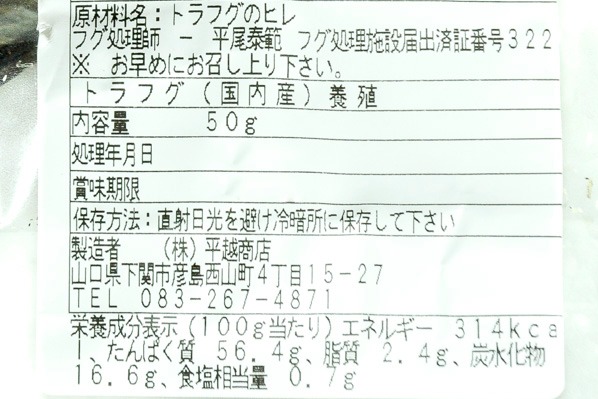 原材料名：トラフグのヒレ
フグ処理師　－　平尾泰範　フグ処理施設届出済証番号３２２
※　お早めにお召し上り下さい。
トラフグ（国内産）養殖
内容量　　　５０ｇ
処理年月日
賞味期限
保存方法：直射日光を避け冷暗所に保存して下さい
製造者　　（株）平越商店
山口県下関市彦島西山町４丁目１５－２７
ＴＥＬ　０８３－２６７－４８７１
栄養成分表示（１００ｇ当たり）エネルギー　３１４ｋｃａ
ｌ、たんぱく質　５６．４ｇ、脂質　２．４ｇ、炭水化物
１６．６ｇ、食塩相当量　０．７ｇ